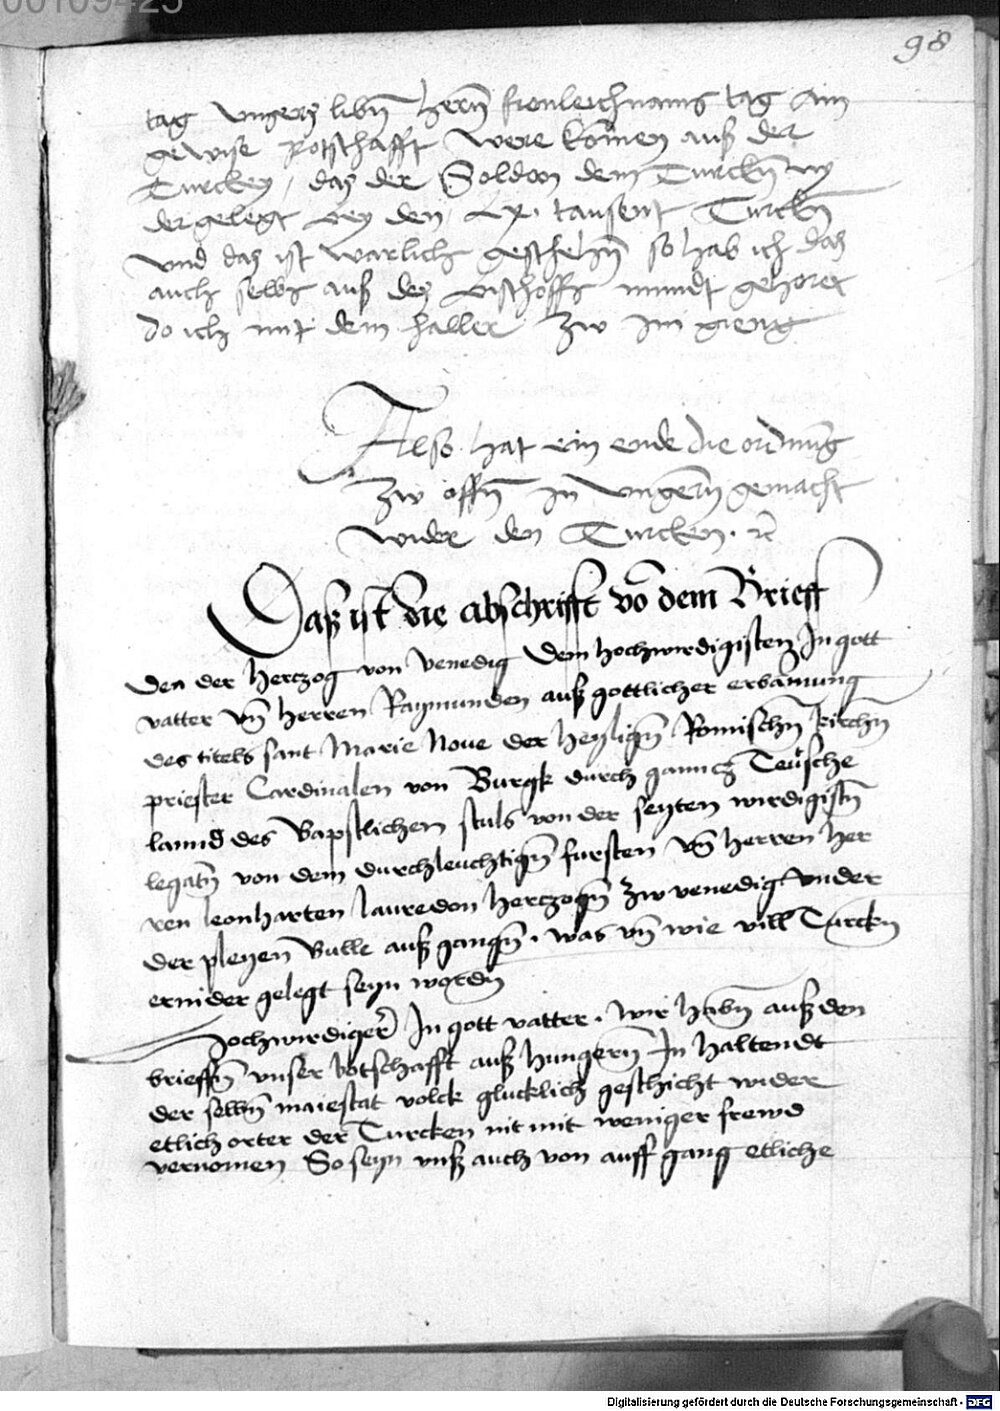 00109425
98
tag Vnnsers libñ herñ fronleichnams tag ain
gewise potschafft were komen auß der
Turckey / das der Soldon dem Turckñ
der gelegt bey den Lx. tausent Turckñ
vnd das ist warlich geschehñ so hab ich das
auch selbs auß des bischoffs mundt gehoret
do ich mit dem haller zw im gieng
Also hat ein ende die ordnũg
zw offñ in vngerñ gemacht
wider den Turcken. rc
Daß ist die abschrifft võ dem Brieff
Den der hertzog von Venedig Dem hochwirdigisten In gott
vatter vñ herren Raymunden auß gottlicher erbãmung
des titels sant Marie Noue der heyligñ Romischñ kirchñ
priester Cardinalen von Burgk durch gantz Teusche
lannd des Bapstlichen stuls von der seyten wirdigistñ
legatñ von dem durchleuchtigñ fursten vñ herren her
ren leonharten lauredon hertzogñ zw venedig vnder
der pleyen Bulle auß gangñ. was vñ wie vill Turckñ
ernider gelegt seyn wordñ
Hochwirdiger In gott vatter. wir habñ auß den
brieffñ vnser botschafft auß hungerñ In haltendt
der selbñ maiestat volck glucklich geschicht wider
etlich orter der Turcken nit mit weniger frewd
vernomen So seyn vnß auch von auff gang etliche
Digitalisierung gefördert durch die Deutsche Forschungsgemeinschaft - DFG